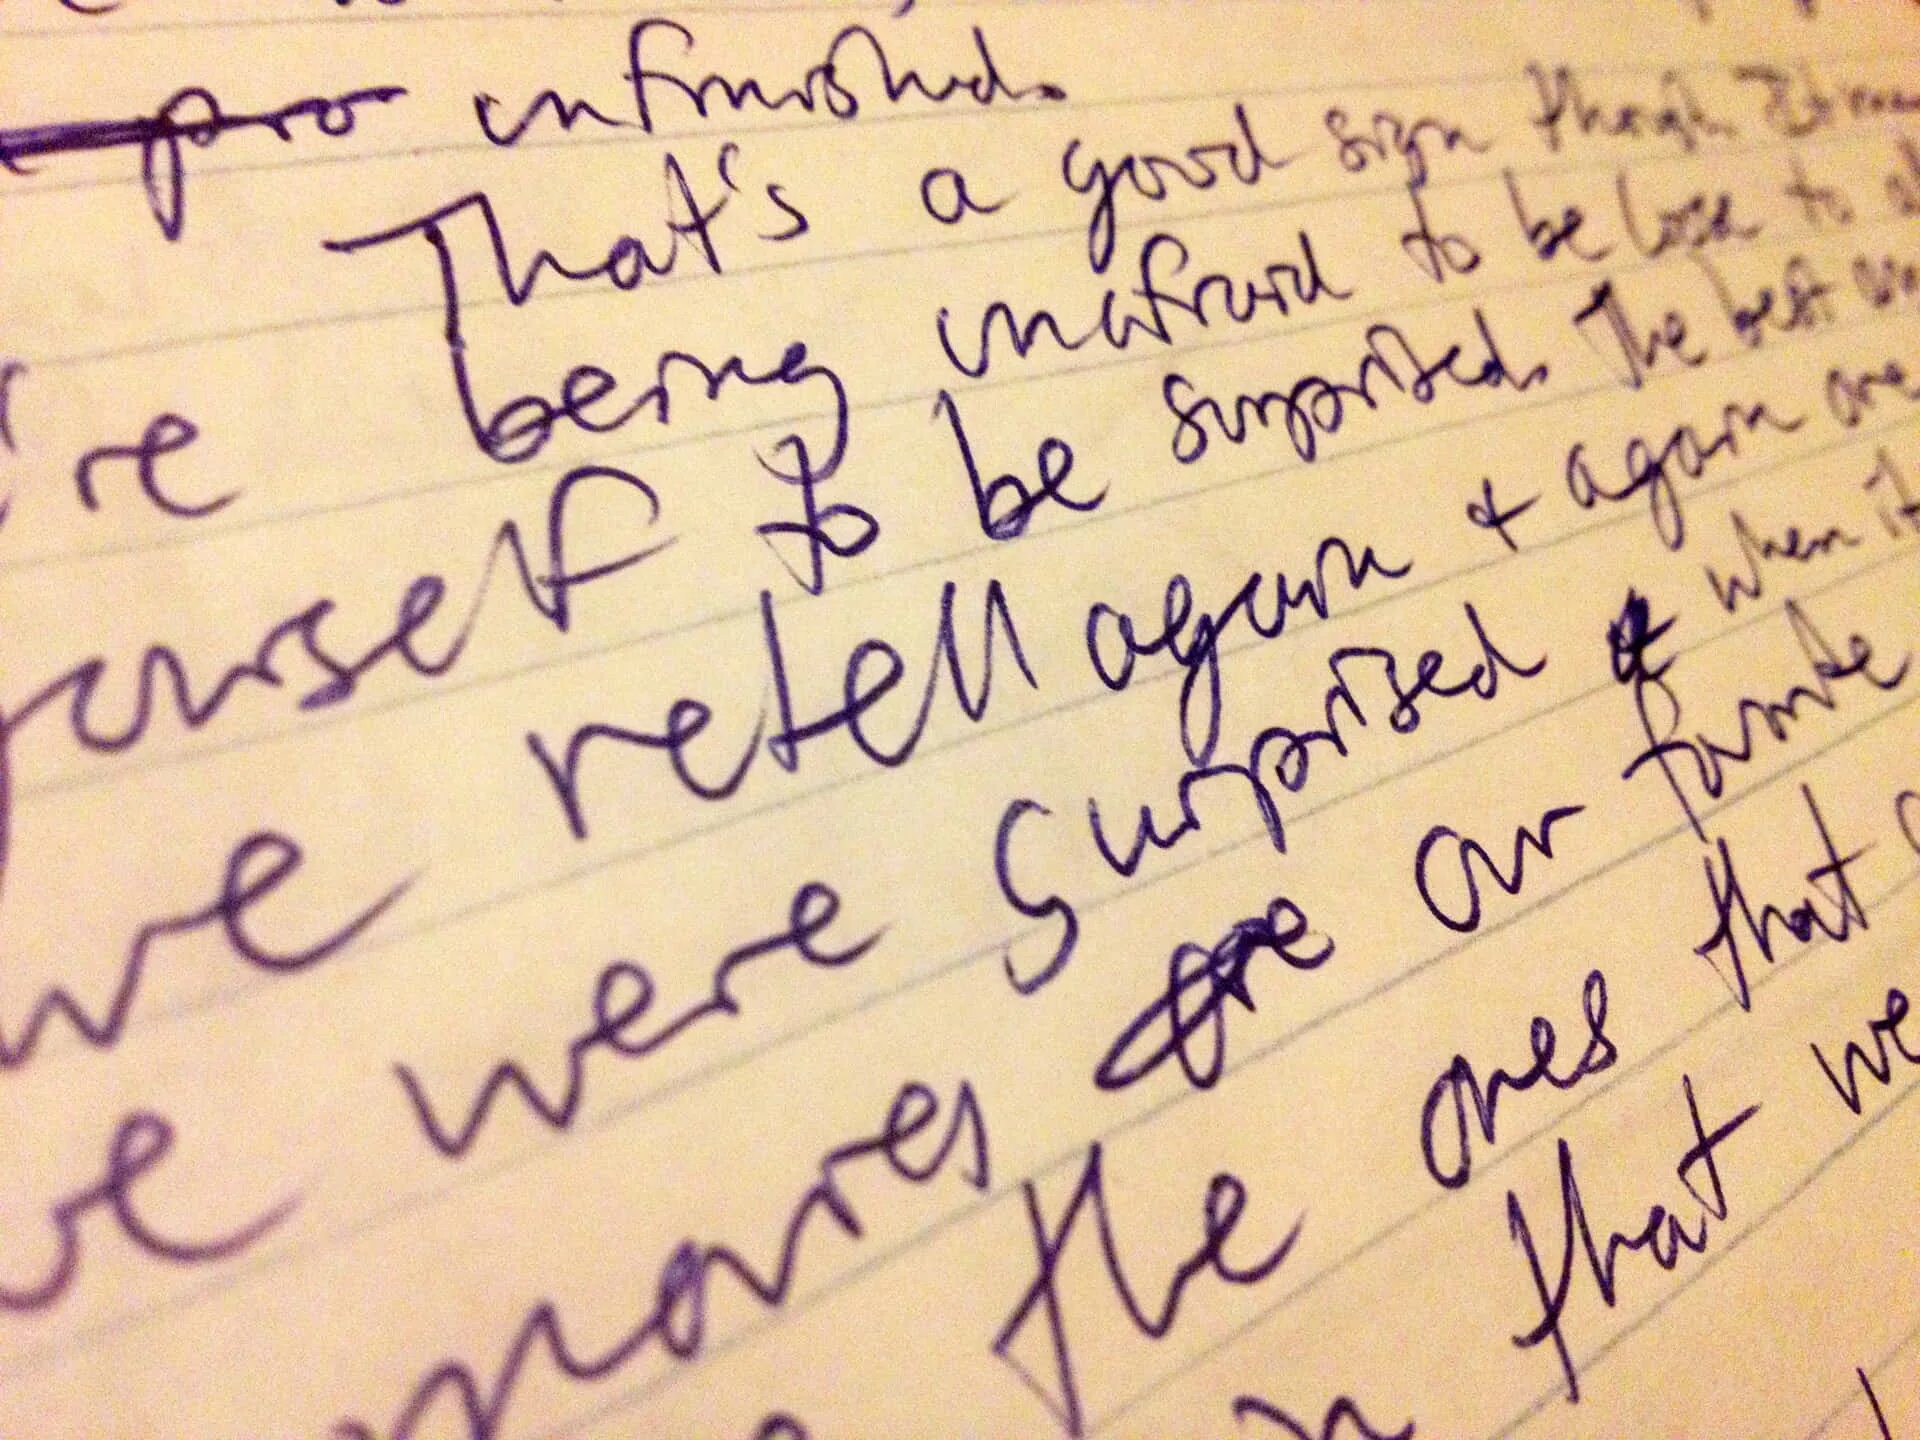 unfinished.
That's a good sign though
're being unafraid to be loose to
yourself to be surprised. The best
we retell again & again are
we were surprised & when it
movies are our favorite
the ones that
that we